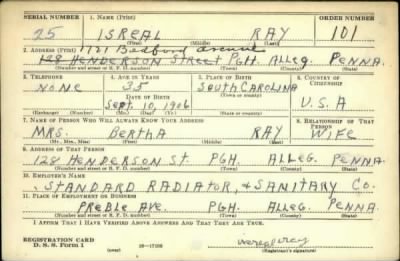 SERIAL NUMBER 1. NAME (Print) ORDER NUMBER
25 ISREAL RAY 101
(First) (Middle) (Last)
1721 Bedford avenue
2. ADDRESS (Print)
128 HENDERSON STREET PGH. ALLEG. PENNA.
(Number and street or R. F. D. number) (Town) (County) (State)
3. TELEPHONE 4. AGE IN YEARS 5. PLACE OF BIRTH 6. COUNTRY OF CITIZENSHIP
NONE 35 SOUTH CAROLINA
(Town or county)
DATE OF BIRTH
Sept. 10, 1906 U.S.A
(Exchange) (Number) (Mo.) (Day) (Yr.) (State or country)
7. NAME OF PERSON WHO WILL ALWAYS KNOW YOUR ADDRESS 8. RELATIONSHIP OF THAT PERSON
MRS. BERTHA RAY WIFE
(Mr., Mrs., Miss) (First) (Middle) (Last)
9. ADDRESS OF THAT PERSON
128 HENDERSON ST. PGH. ALLEG. PENNA
(Number and street or R. F. D. number) (Town) (County) (State)
10. EMPLOYER'S NAME
STANDARD RADIATOR, & SANITARY CO.
11. PLACE OF EMPLOYMENT OR BUSINESS
PREBLE AVE. PGH. ALLEG. PENNA.
(Number and street or R. F. D. number) (Town) (County) (State)
I AFFIRM THAT I HAVE VERIFIED ABOVE ANSWERS AND THAT THEY ARE TRUE.
REGISTRATION CARD
D. S. S. Form 1 (over) 16—17105 (Registrant's signature)